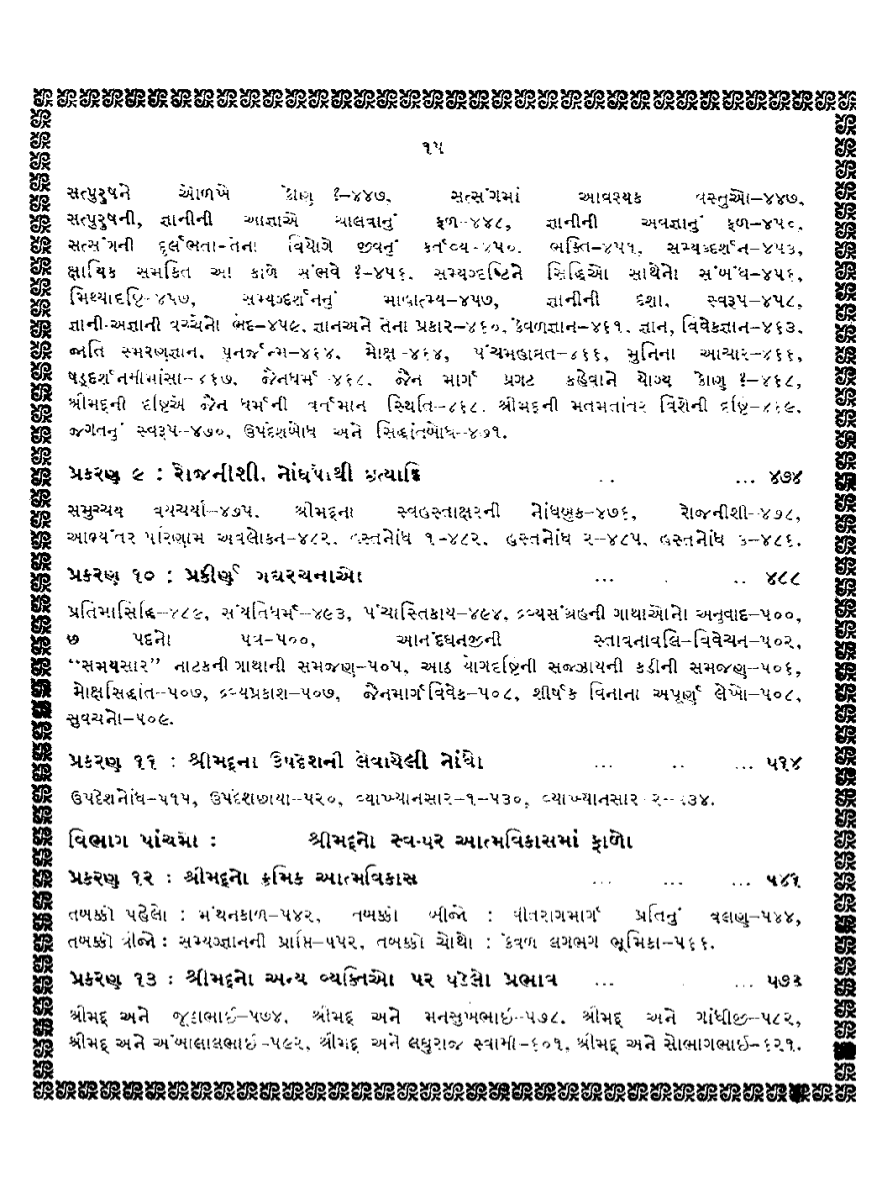 ૧૫
સત્પુરુષને ઓળખે કોણ ?–૪૪૭, સત્સંગમાં આવશ્યક વસ્તુઓ–૪૪૭,
સત્પુરુષની, જ્ઞાનીની આજ્ઞાએ ચાલવાનું ફળ–૪૪૮, જ્ઞાનીની અવજ્ઞાનું ફળ–૪૫૦,
સત્સંગની દુર્લભતા-તેના વિયોગે જીવનું કર્તવ્ય-૪૫૦. ભક્તિ–૪૫૧, સમ્યગ્દર્શન–૪૫૩,
ક્ષાયિક સમકિત આ કાળે સંભવે ?–૪૫૬. સમ્યગ્દષ્ટિને સિદ્ધિઓ સાથેનો સંબંધ–૪૫૬,
મિથ્યાદષ્ટિ-૪૫૭, સમ્યગ્દર્શનનું માહાત્મ્ય–૪૫૭, જ્ઞાનીની દશા, સ્વરૂપ–૪૫૮,
જ્ઞાની-અજ્ઞાની વચ્ચેનો ભેદ–૪૫૯, જ્ઞાનઅને તેના પ્રકાર–૪૬૦, કેવળજ્ઞાન–૪૬૧, જ્ઞાન, વિવેકજ્ઞાન–૪૬૩,
જાતિ સ્મરણજ્ઞાન, પુનર્જન્મ–૪૬૪, મોક્ષ-૪૬૪, પંચમહાવ્રત–૪૬૬, મુનિના આચાર–૪૬૬,
ષડ્દર્શનમીમાંસા–૪૬૭, જૈનધર્મ-૪૬૮, જૈન માર્ગ પ્રગટ કહેવાને યોગ્ય કોણ ?–૪૬૮,
શ્રીમદ્દની દષ્ટિએ જૈન ધર્મની વર્તમાન સ્થિતિ–૪૬૮. શ્રીમદ્દની મતમતાંતર વિશેની દષ્ટિ–૪૬૯,
જગતનું સ્વરૂપ–૪૭૦, ઉપદેશબોધ અને સિદ્ધાંતબોધ–૪૭૧.
પ્રકરણ ૯ : રોજનીશી, નોંધપોથી ઇત્યાદિ .. ... ૪૭૪
સમુચ્ચય વયચર્યા–૪૭૫, શ્રીમદ્દના સ્વહસ્તાક્ષરની નોંધણુક–૪૭૬, રોજનીશી–૪૭૮,
આભ્યંતર પરિણામ અવલોકન–૪૮૨, હસ્તનોંધ ૧–૪૮૨, હસ્તનોંધ ૨–૪૮૫, હસ્તનોંધ ૩–૪૮૬.
પ્રકરણ ૧૦ : પ્રકીર્ણ ગદ્યરચનાઓ ... . .. ૪૮૮
પ્રતિમાસિદ્ધિ–૪૮૯, સંયતિધર્મ–૪૯૩, પંચાસ્તિકાય–૪૯૪, દ્રવ્યસંગ્રહની ગાથાઓનો અનુવાદ–૫૦૦,
છ પદનો પત્ર–૫૦૦, આનંદઘનજીની સ્તવનાવલિ–વિવેચન–૫૦૨,
“સમયસાર” નાટકની ગાથાની સમજણ–૫૦૫, આઠ યોગદષ્ટિની સજ્ઝાયની કડીની સમજણ–૫૦૬,
મોક્ષસિદ્ધાંત–૫૦૭, દ્રવ્યપ્રકાશ–૫૦૭, જૈનમાર્ગવિવેક–૫૦૮, શીર્ષક વિનાના અપૂર્ણ લેખો–૫૦૮,
સુવચનો–૫૦૯.
પ્રકરણ ૧૧ : શ્રીમદ્દના ઉપદેશની લેવાયેલી નોંધો ... .. ... ૫૧૪
ઉપદેશનોંધ–૫૧૫, ઉપદેશછાયા–૫૨૦, વ્યાખ્યાનસાર–૧–૫૩૦, વ્યાખ્યાનસાર-૨–૫૩૪.
વિભાગ પાંચમો : શ્રીમદ્દનો સ્વ-પર આત્મવિકાસમાં ફાળો
પ્રકરણ ૧૨ : શ્રીમદ્દનો ક્રમિક આત્મવિકાસ ... ... ... ૫૪૧
તબક્કો પહેલો : મંથનકાળ–૫૪૨, તબક્કો બીજો : વીતરાગમાર્ગ પ્રતિનું વલણ–૫૪૪,
તબક્કો ત્રીજો : સમ્યગ્જ્ઞાનની પ્રાપ્તિ–૫૫૨, તબક્કો ચોથો : કેવળ લગભગ ભૂમિકા–૫૬૬.
પ્રકરણ ૧૩ : શ્રીમદ્દનો અન્ય વ્યક્તિઓ પર પડેલો પ્રભાવ ... ... ૫૭૩
શ્રીમદ્ અને જૂઠાભાઈ–૫૭૪, શ્રીમદ્ અને મનસુખભાઈ–૫૭૮. શ્રીમદ્ અને ગાંધીજી–૫૮૨,
શ્રીમદ્ અને અંબાલાલભાઈ-૫૯૨, શ્રીમદ્ અને લઘુરાજ સ્વામી–૬૦૧, શ્રીમદ્ અને સોભાગભાઈ–૬૨૧.